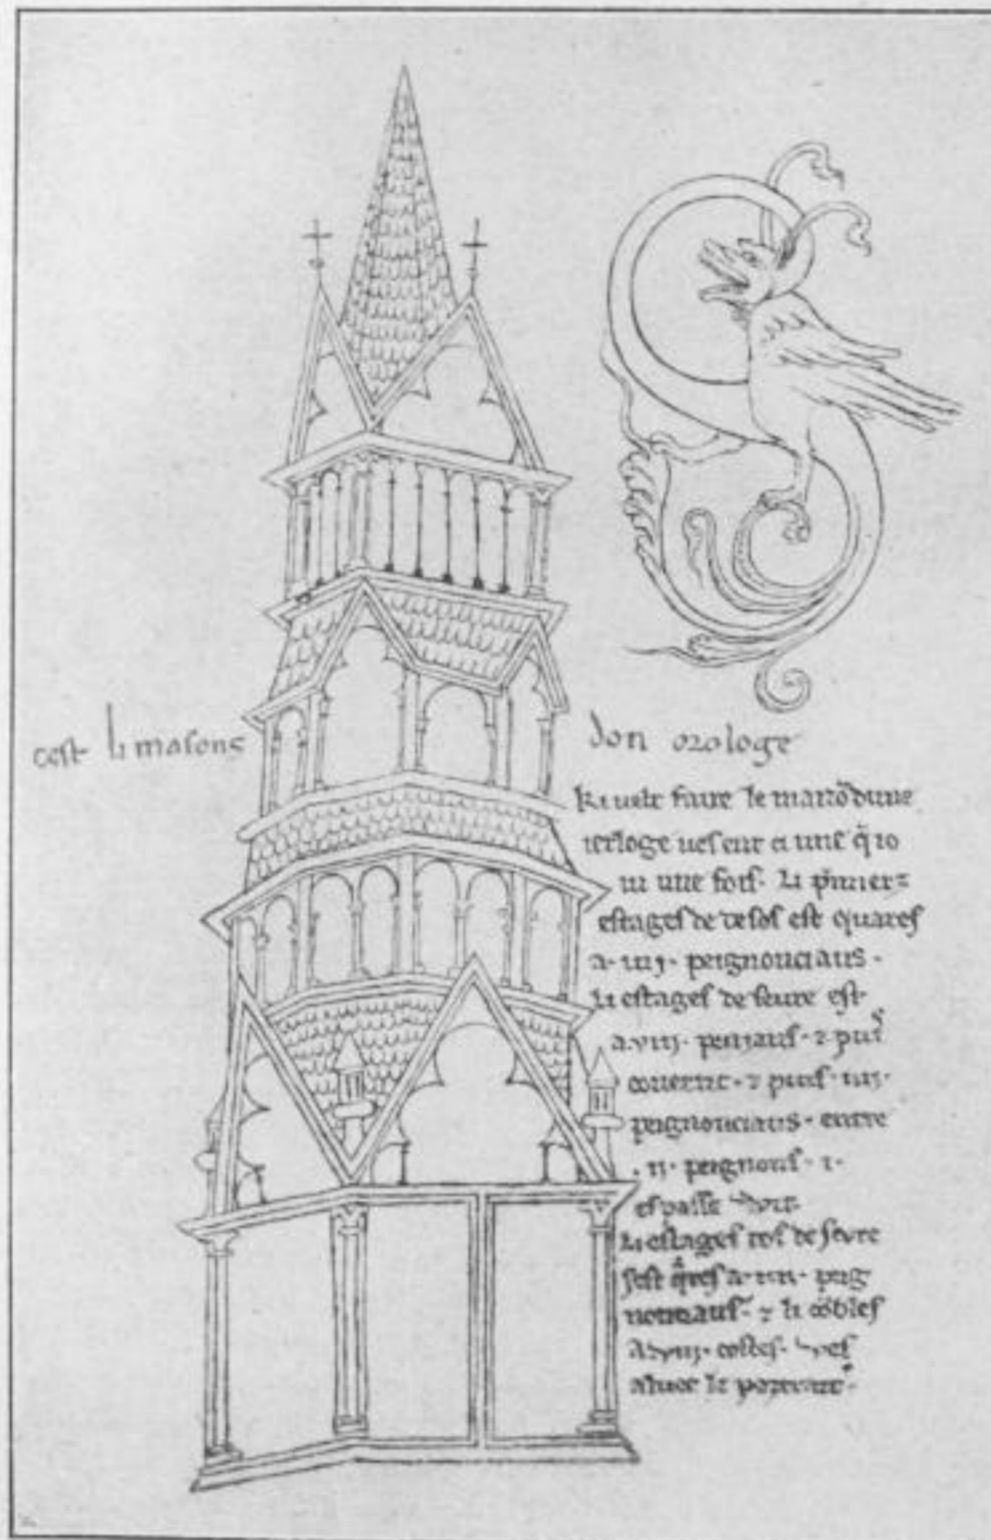 cest li masons don orologe
Ki velt faire le maizõ dune
ierloge ves ent ci une q̃ io
vi une fois. Li p̃mierz
estages de desos est quares
a .iiij. peignonciaus.
Li estages de seure est
a .viij. peniaus. ⁊ puis
covertic. ⁊ puis .iiij.
peignonciaus. entre
.ij. peignons .i.
espasse wit.
Li estages tos de sevre
sest q̃res a .iiij. peig
nonciaus. ⁊ li cõbles
a .viij. costes. ves
aluec le portrait.